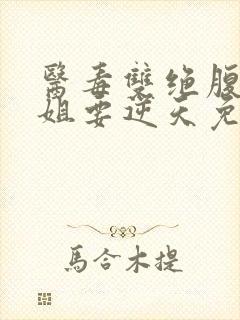 醫毒雙绝腹
姐要逆天免
馬合木提